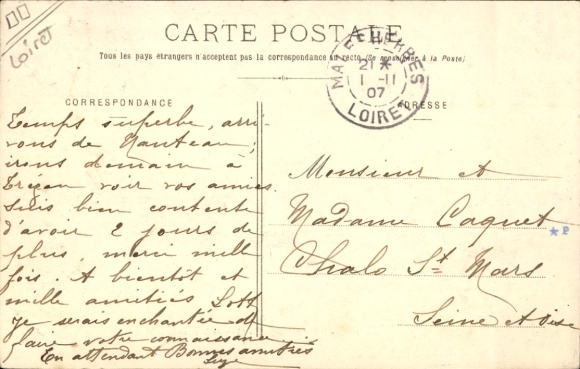 Loiret
CARTE POSTALE
Tous les pays étrangers n'acceptent pas la correspondance au recto (Se renseigner à la Poste)
MALESHERBES
21 *
1 -11
07
LOIRET
CORRESPONDANCE
ADRESSE
Temps superbe, arri-
vons de Nanteau,
irons demain à
voir vos amies
suis bien contente
d'avoir 2 jours de
plus, merci mille
fois. A bientôt et
mille amitiés
je serais enchantée de
faire votre connaissance
En attendant Bonnes amitiés
Monsieur et
Madame Coquet
Chalo St Mars
Seine et Oise
*P